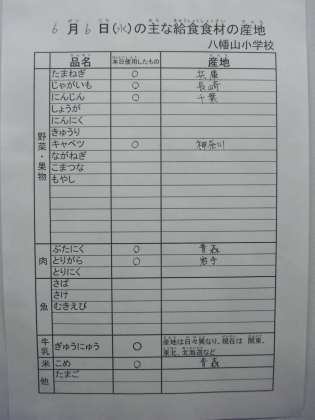 6月6日(水)の主な給食食材の産地
八幡山小学校
品名 本日使用したもの 産地
野菜・果物
たまねぎ ○ 兵庫
じゃがいも ○ 長崎
にんじん ○ 千葉
しょうが
にんにく
きゅうり
キャベツ ○ 神奈川
ながねぎ
こまつな
もやし
肉
ぶたにく ○ 青森
とりがら ○ 岩手
とりにく
魚
さば
さけ
むきえび
牛乳 ぎゅうにゅう ○ 産地は日々異なり、現在は 関東、
東北、北海道など
米 こめ ○ 青森
他 たまご